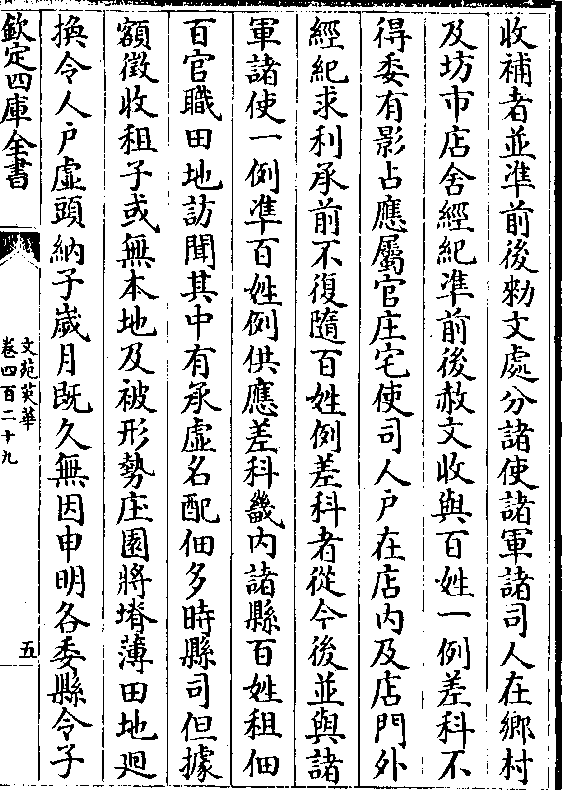 收補者並準前後勅文處分諸使諸軍諸司人在鄉村
及坊市店舍經紀準前後赦文收與百姓一例差科不
得委有影占應屬官庄宅使司人户在店内及店門外
經紀求利承前不復隨百姓例差科者從今後並與諸
軍諸使一例準百姓例供應差科畿内諸縣百姓租佃
百官職田地訪聞其中有承虚名配佃多時縣司但據
額徵收租子或無本地及被形勢庄園將塉薄田地廻
換令人户虚頭納子歲月既久無因申明各委縣令子
欽定四庫全書
文苑英華
卷四百二十九
五